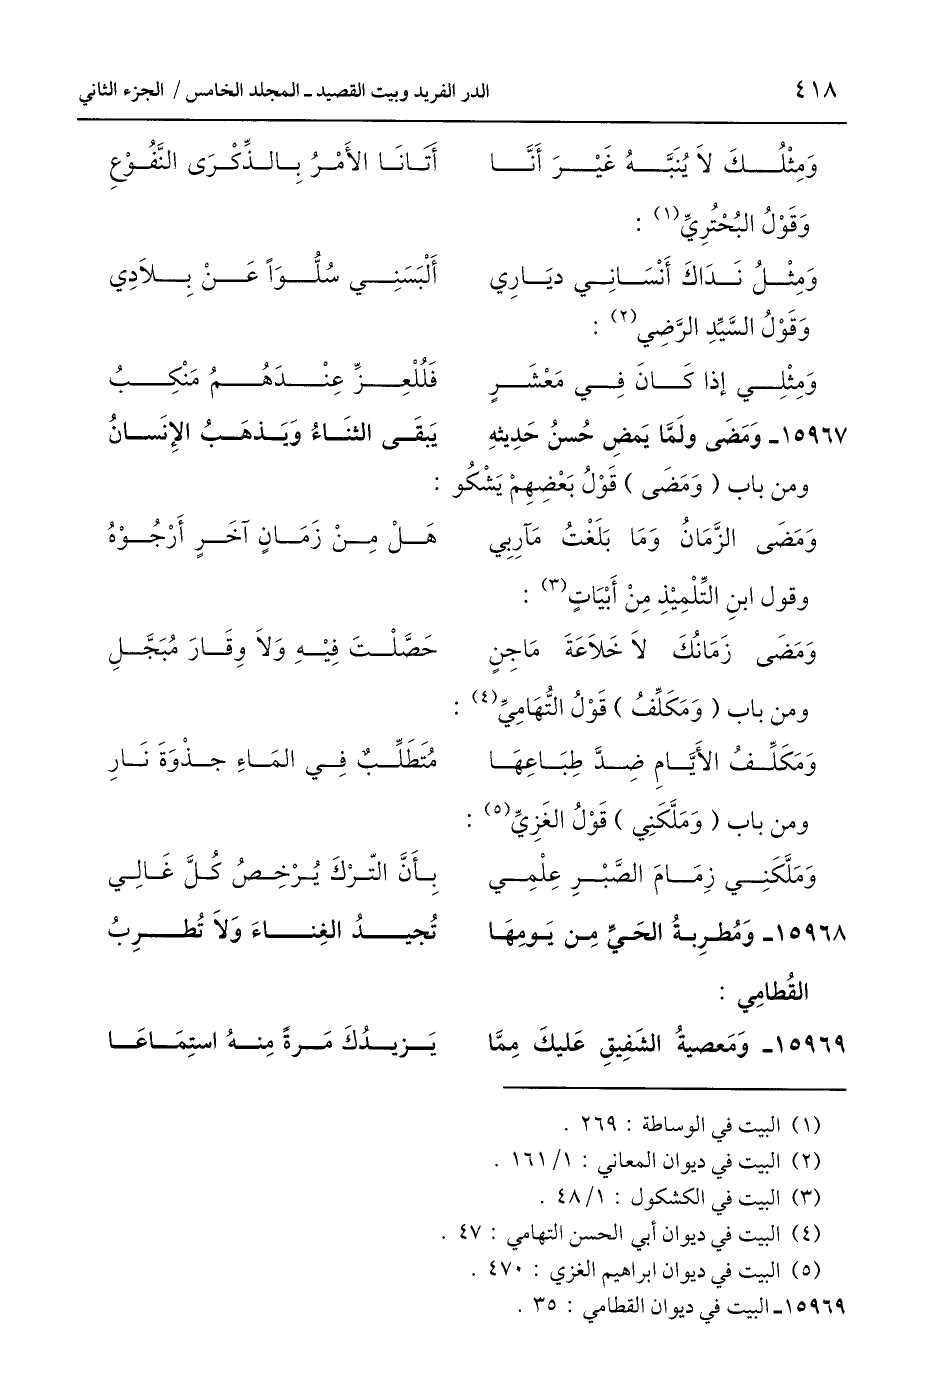 ٤١٨ الدر الفريد وبيت القصيد ـ المجلد الخامس / الجزء الثاني
وَمِثْلُكَ لاَ يُنَبَّهُ غَيْرَ أَنَّا أَتَانَا الأَمْرُ بِالذِّكْرَى النَّفُوْعِ
وَقَوْلُ البُحْتُرِيِّ(١) :
وَمِثْلُ نَدَاكَ أَنْسَانِي دِيَارِي أَلْبَسَنِي سُلُّوَاً عَنْ بِلاَدِي
وَقَوْلُ السَّيِّدِ الرَّضِي(٢) :
وَمِثْلِي إِذَا كَانَ فِي مَعْشَرٍ فَلُلْعِزِّ عِنْدَهُمُ مَنْكِبُ
١٥٩٦٧ـ وَمَضَى ولَمَّا يَمضِ حُسنُ حَدِيثهِ يَبقَى الثنَاءُ وَيَذهَبُ الإِنسَانُ
ومن باب ( وَمَضَى ) قَوْلُ بَعْضِهِمْ يَشْكُو :
وَمَضَى الزَّمَانُ وَمَا بَلَغْتُ مَآرِبِي هَلْ مِنْ زَمَانٍ آخَرٍ أَرْجُوْهُ
وقول ابنِ التِّلْمِيْذِ مِنْ أَبْيَاتٍ(٣) :
وَمَضَى زَمَانُكَ لاَ خَلاَعَةَ مَاجِنٍ حَصَّلْتَ فِيْهِ وَلاَ وِقَارَ مُبَجَّلِ
ومن باب ( وَمَكَلِّفُ ) قَوْلُ التُّهَامِيِّ(٤) :
وَمَكَلِّفُ الأَيَّامِ ضِدَّ طِبَاعِهَا مُتَطَلِّبٌ فِي المَاءِ جِذْوَةَ نَارِ
ومن باب ( وَمَلَّكَنِي ) قَوْلُ الغَزِيِّ(٥) :
وَمَلَّكَنِي زِمَامَ الصَّبْرِ عِلْمِي بِأَنَّ التّرْكَ يُرْخِصُ كُلَّ غَالِي
١٥٩٦٨ـ وَمُطرِبةُ الحَيِّ مِن يَومِهَا تُجيدُ الغِنَاءَ وَلاَ تُطرِبُ
القُطامِي :
١٥٩٦٩ـ وَمَعصيةُ الشَفِيقِ عَليكَ مِمَّا يَزيدُكَ مَرةً مِنهُ استِمَاعَا
(١) البيت في الوساطة : ٢٦٩ .
(٢) البيت في ديوان المعاني : ١/ ١٦١ .
(٣) البيت في الكشكول : ١/ ٤٨ .
(٤) البيت في ديوان أبي الحسن التهامي : ٤٧ .
(٥) البيت في ديوان ابراهيم الغزي : ٤٧٠ .
١٥٩٦٩ـ البيت في ديوان القطامي : ٣٥ .